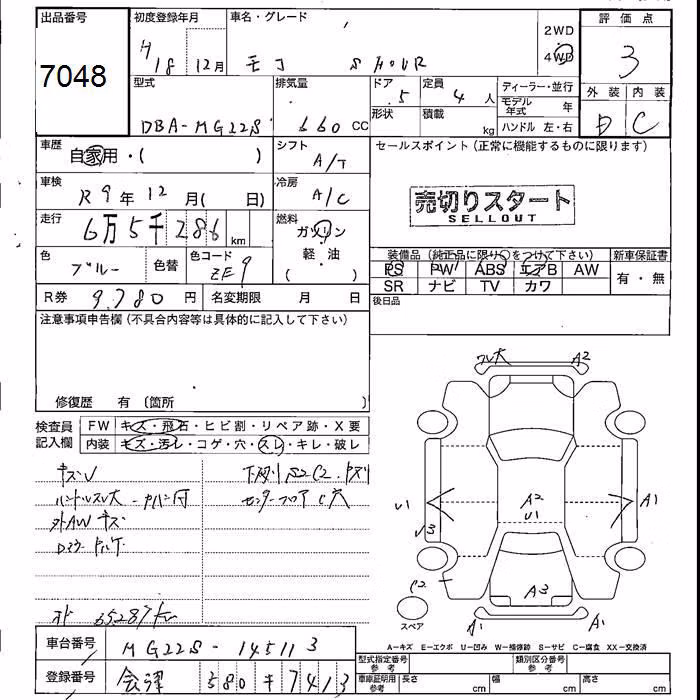 出品番号 初度登録年月 車名・グレード 評価点
7048 H 18 12月 モコ S HOUR 2WD 4WD 3
型式 排気量 ドア 定員 ディーラー・並行 外装 内装
DBA-MG22S 660 CC 5 4人 モデル年式 年 C
形状 積載 kg ハンドル 左・右
車歴 シフト セールスポイント(正常に機能するものに限ります)
自家用・( ) A/T
車検 R9年12月( 日) 冷房 A/C
売切りスタート
SELLOUT
走行 6万5千286km 燃料 ガソリン
軽・油
( )
色 ブルー 色替 色コード ZE9
装備品(純正品に限り○をつけて下さい) 新車保証書
PS PW ABS エアB AW 有・無
SR ナビ TV カワ
R券 9,780円 名変期限 月 日
後日品
注意事項申告欄(不具合内容等は具体的に記入して下さい)
修復歴 有 〔箇所 〕
検査員記入欄 FW キズ・飛石・ヒビ割・リペア跡・X要
内装 キズ・汚レ・コゲ・穴・スレ・キレ・破レ
キズU
ハンドルスレ大
外AWキズ
センターフロアC穴
65287km
A2
U1 A2 U1 A1
U3
C2 A3
A1 A1
スペア
A-キズ E-エクボ U-凹み W-補修跡 S-サビ C-腐食 XX-交換済
車台番号 MG22S-145113
登録番号 会津 580 キ 7413
型式指定番号 参考 類別区分番号 参考
車庫証明用参考 長さ cm 幅 cm 高さ cm